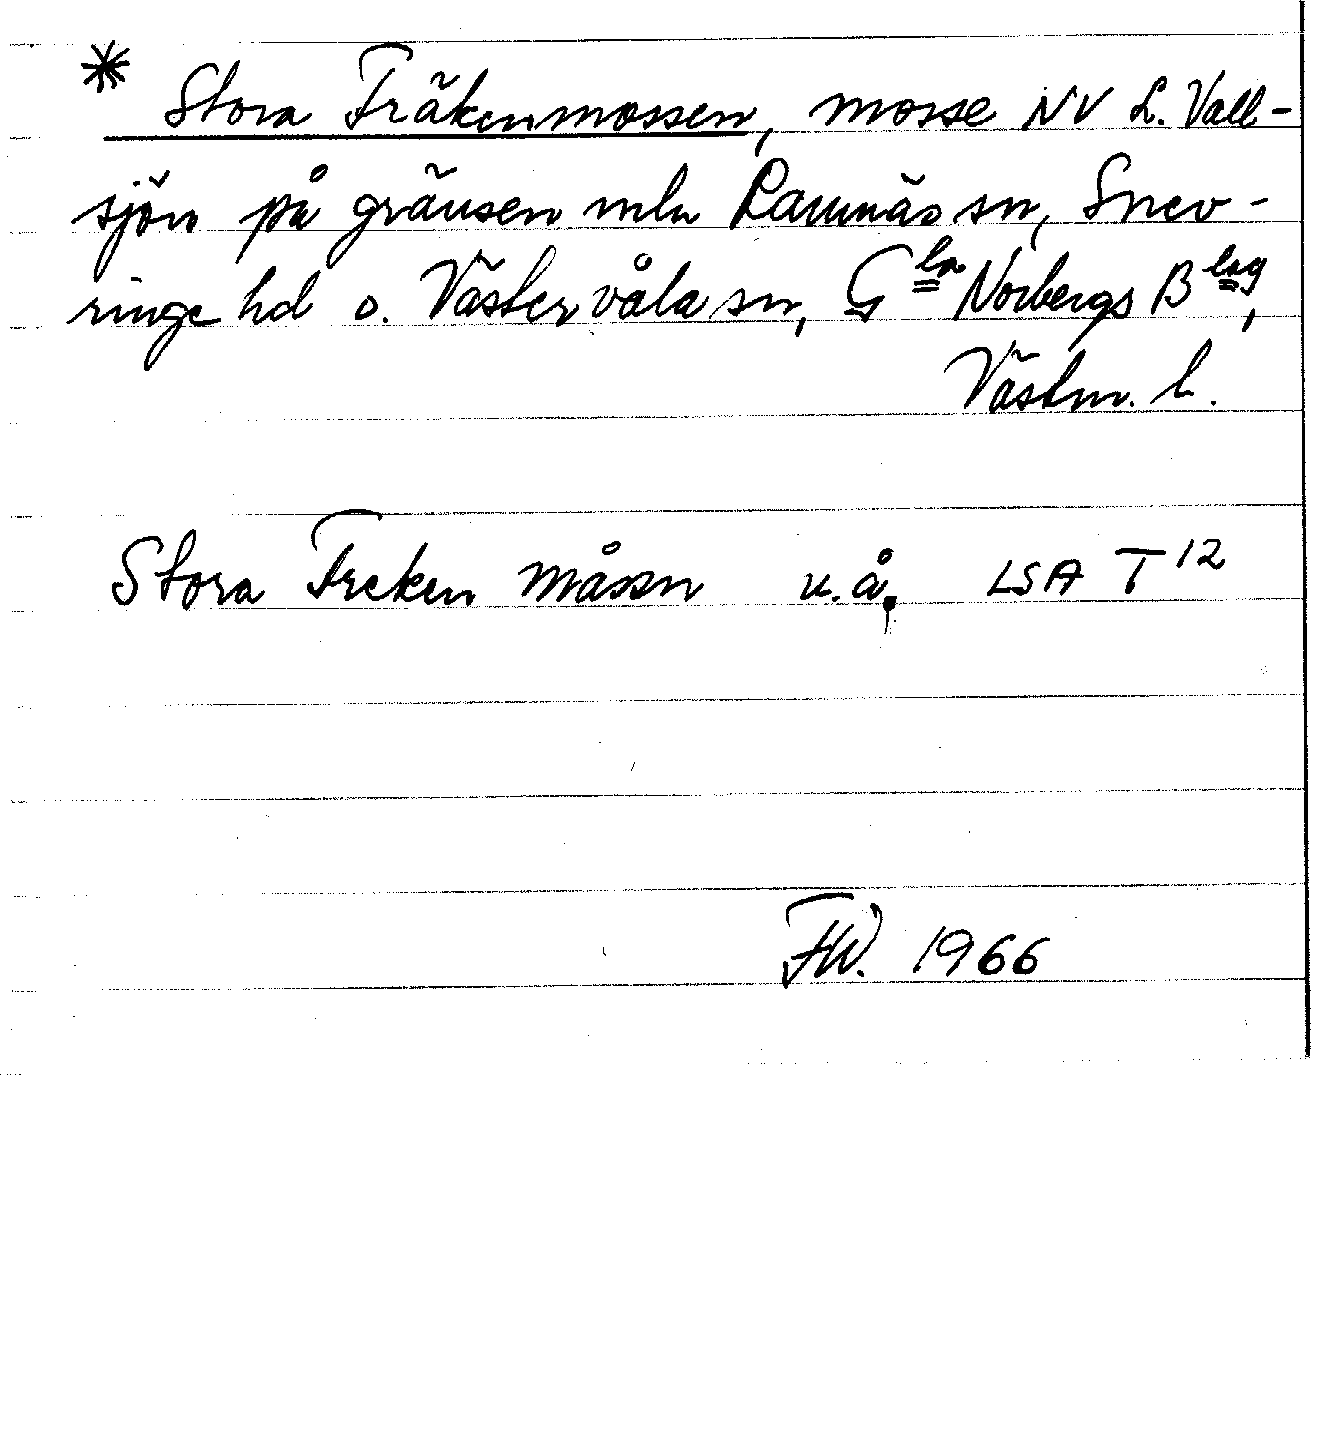 * Stora Fräkenmossen, mosse NV L. Vall-
sjön på gränsen mln Ramnäs sn, Snev-
ringe hd o. Västervåla sn, Gla Norbergs Blag,
Västm. l.
Stora Freken Måssn u.å. LSA T12
FW. 1966